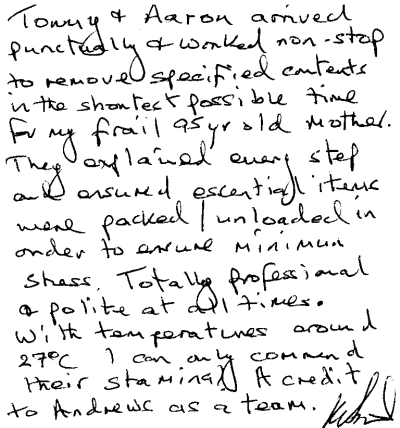 Tommy & Aaron arrived
punctually & worked non-stop
to remove specified contents
in the shortest possible time
for my frail 95yr old mother.
They explained every step
and ensured essential items
were packed / unloaded in
order to ensure minimum
stress. Totally professional
& polite at all times.
With temperatures around
27°C I can only commend
their stamina! A credit
to Andrews as a team.